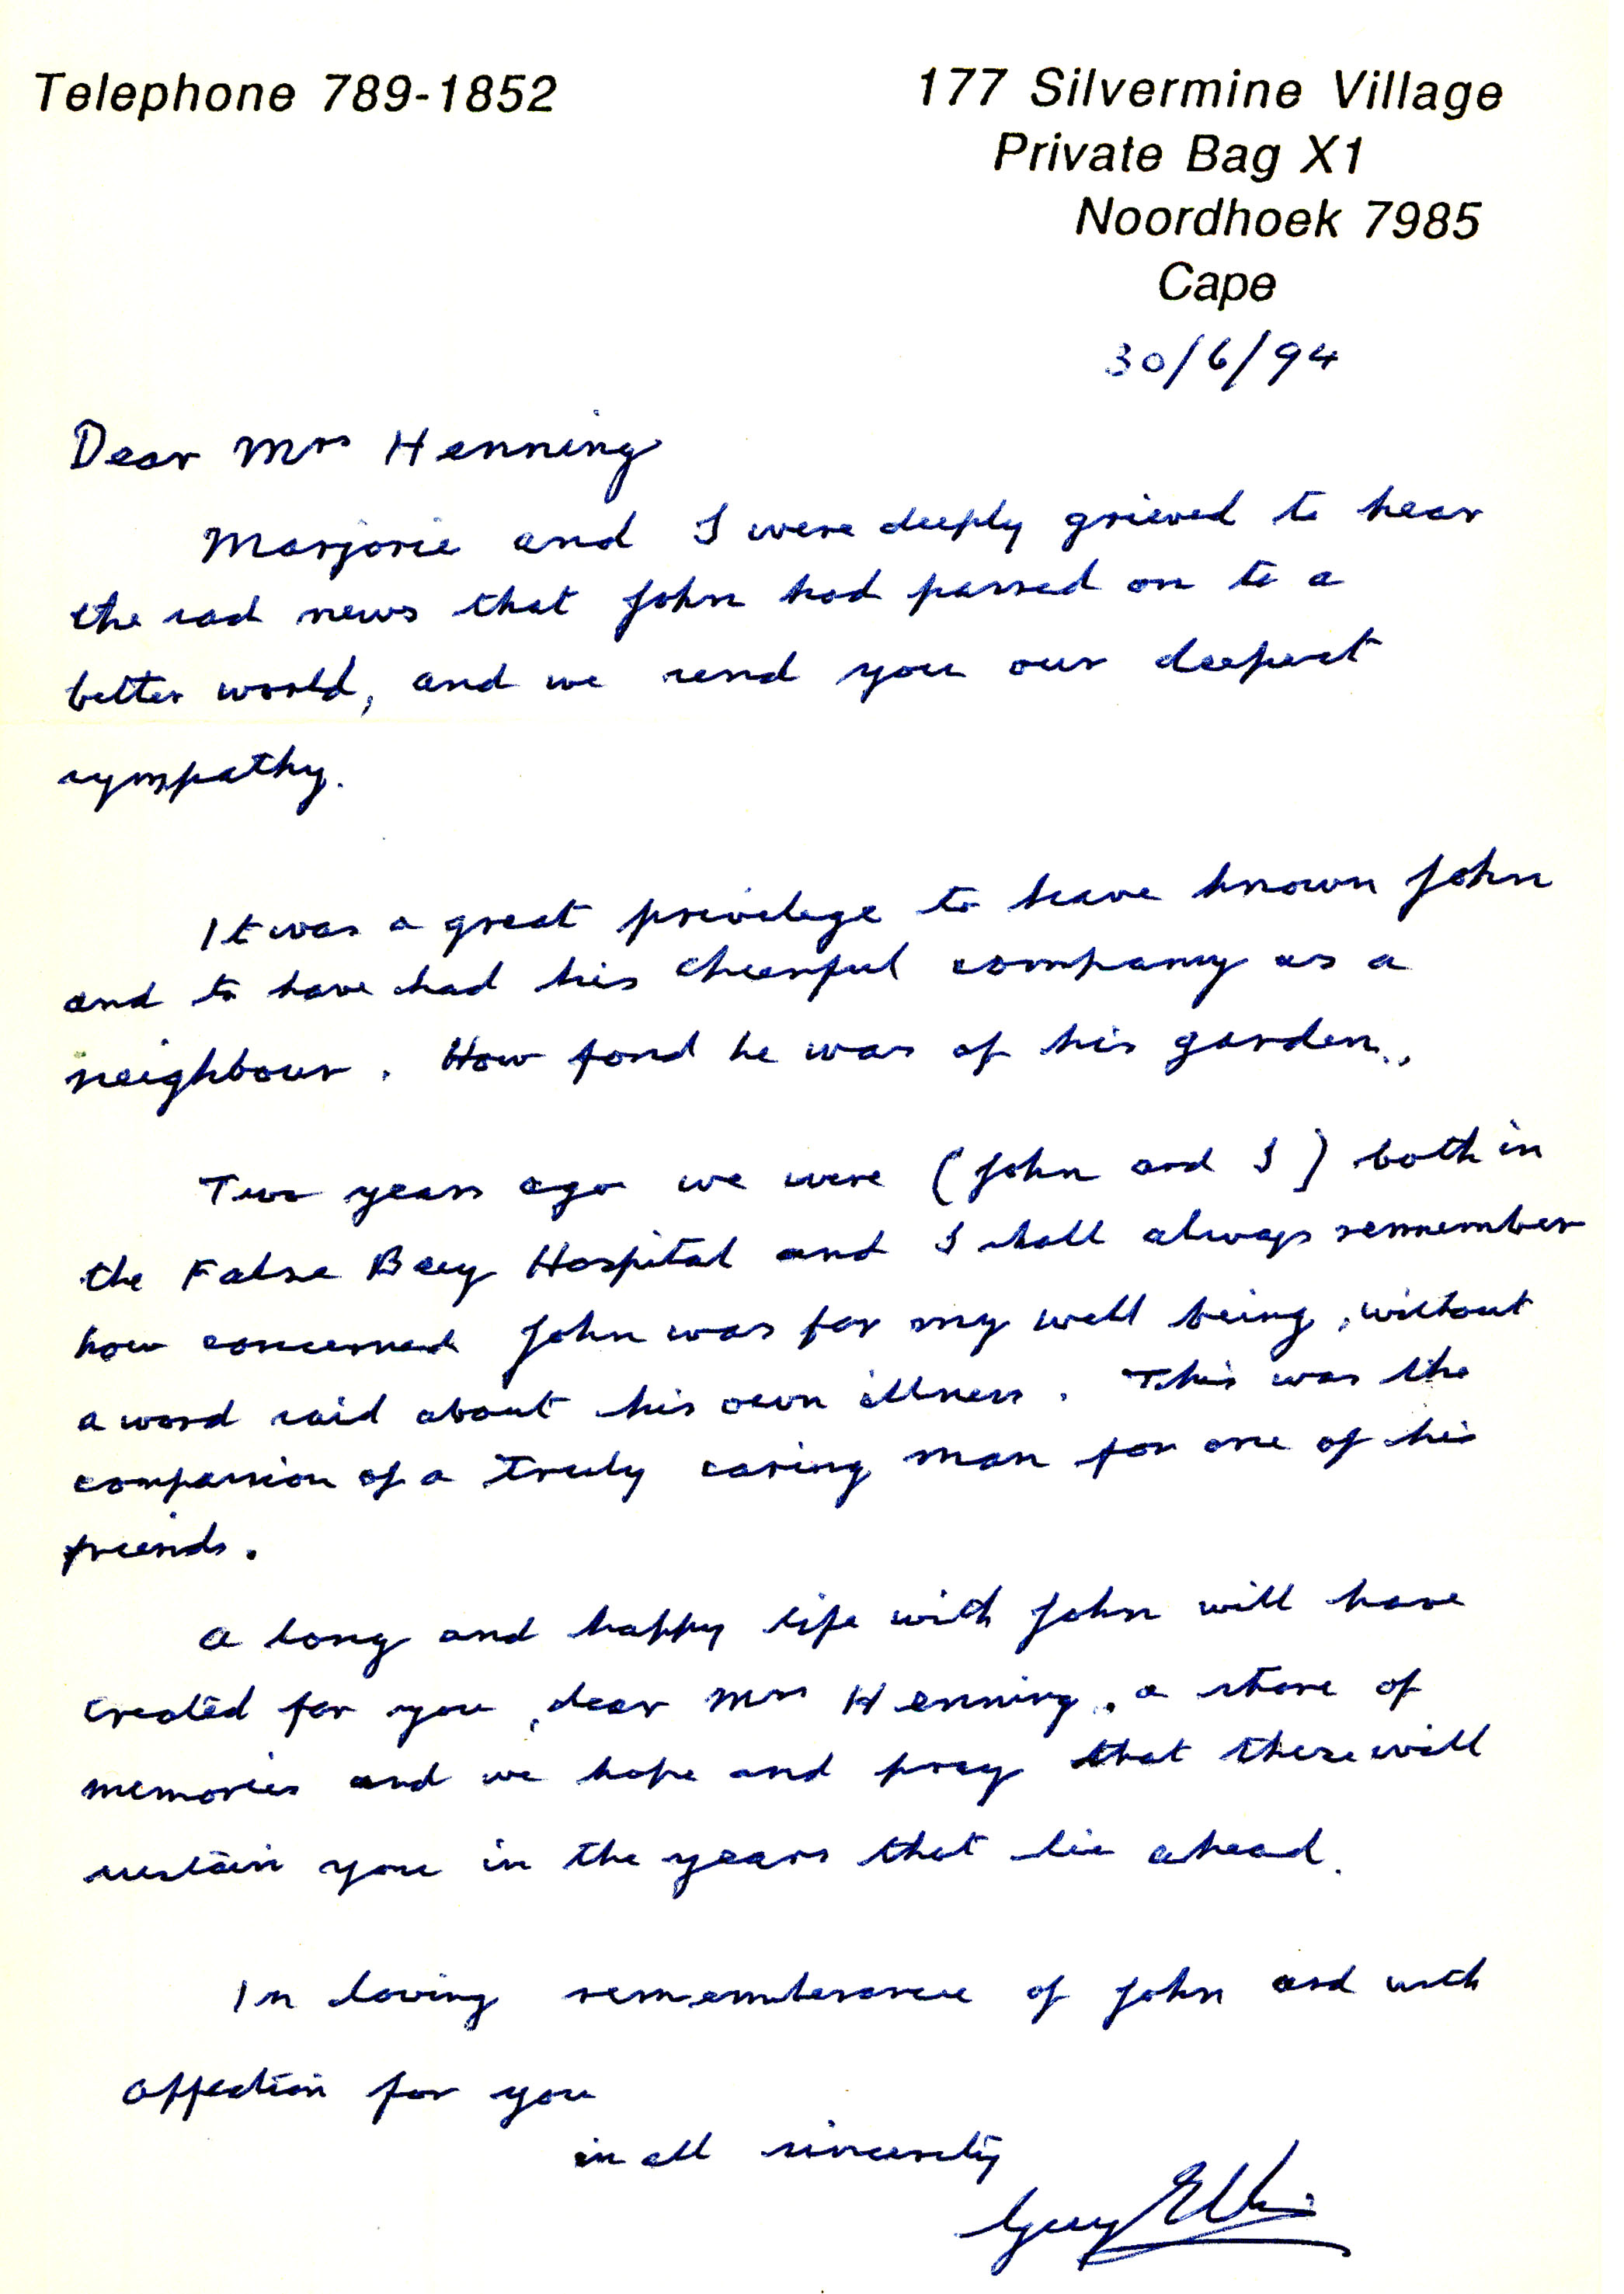 Telephone 789-1852
177 Silvermine Village
Private Bag X1
Noordhoek 7985
Cape
30/6/94
Dear Mrs Henning
Marjorie and I were deeply grieved to hear
the sad news that John had passed on to a
better world, and we send you our deepest
sympathy.
It was a great privilege to have known John
and to have had his cheerful company as a
neighbour. How fond he was of his garden.
Two years ago we were (John and I) both in
the False Bay Hospital and I shall always remember
how concerned John was for my well being, without
a word said about his own illness. This was the
compassion of a truly caring man for one of his
friends.
A long and happy life with John will have
created for you, dear Mrs Henning, a store of
memories and we hope and pray that these will
sustain you in the years that lie ahead.
In loving rememberance of John and with
affection for you
in all sincerity
Guy Ellis